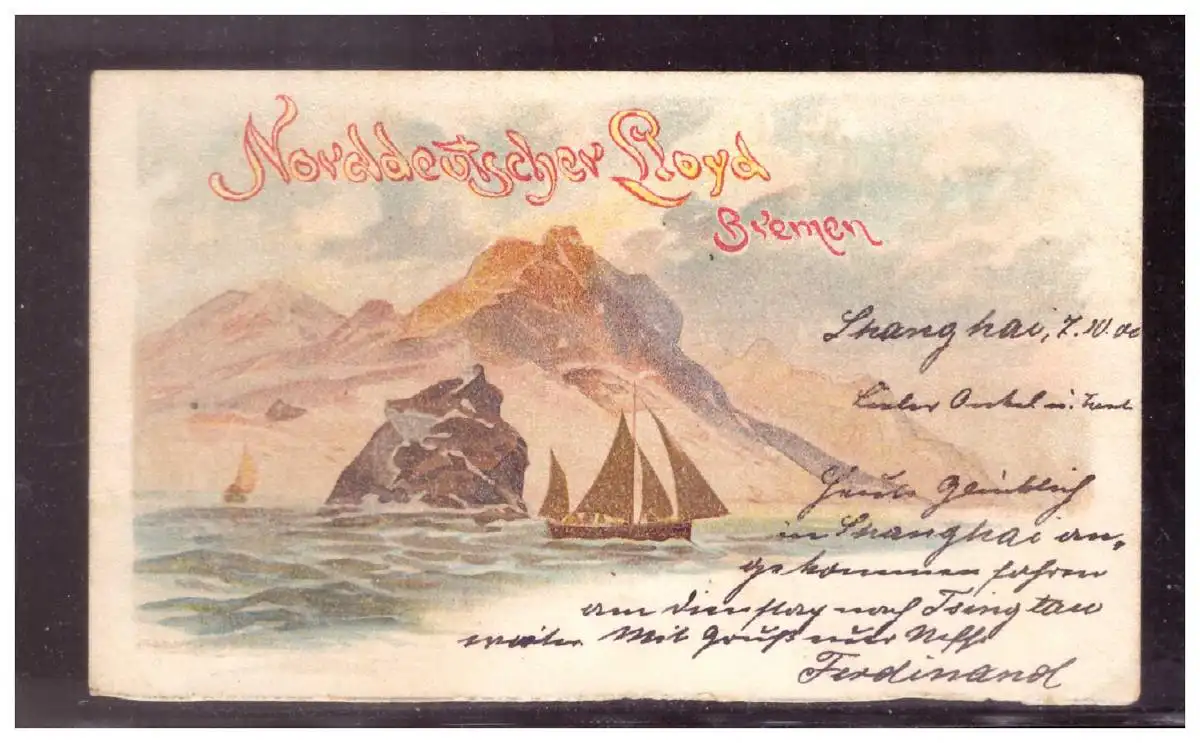 Norddeutscher Lloyd
Bremen
Shanghai, 7.10.00
Lieber Onkel u. Tante
Heute glücklich
in Shanghai an,
gekommen fahren
am Dienstag nach Tsingtau
weiter Mit Gruß euer Neffe
Ferdinand